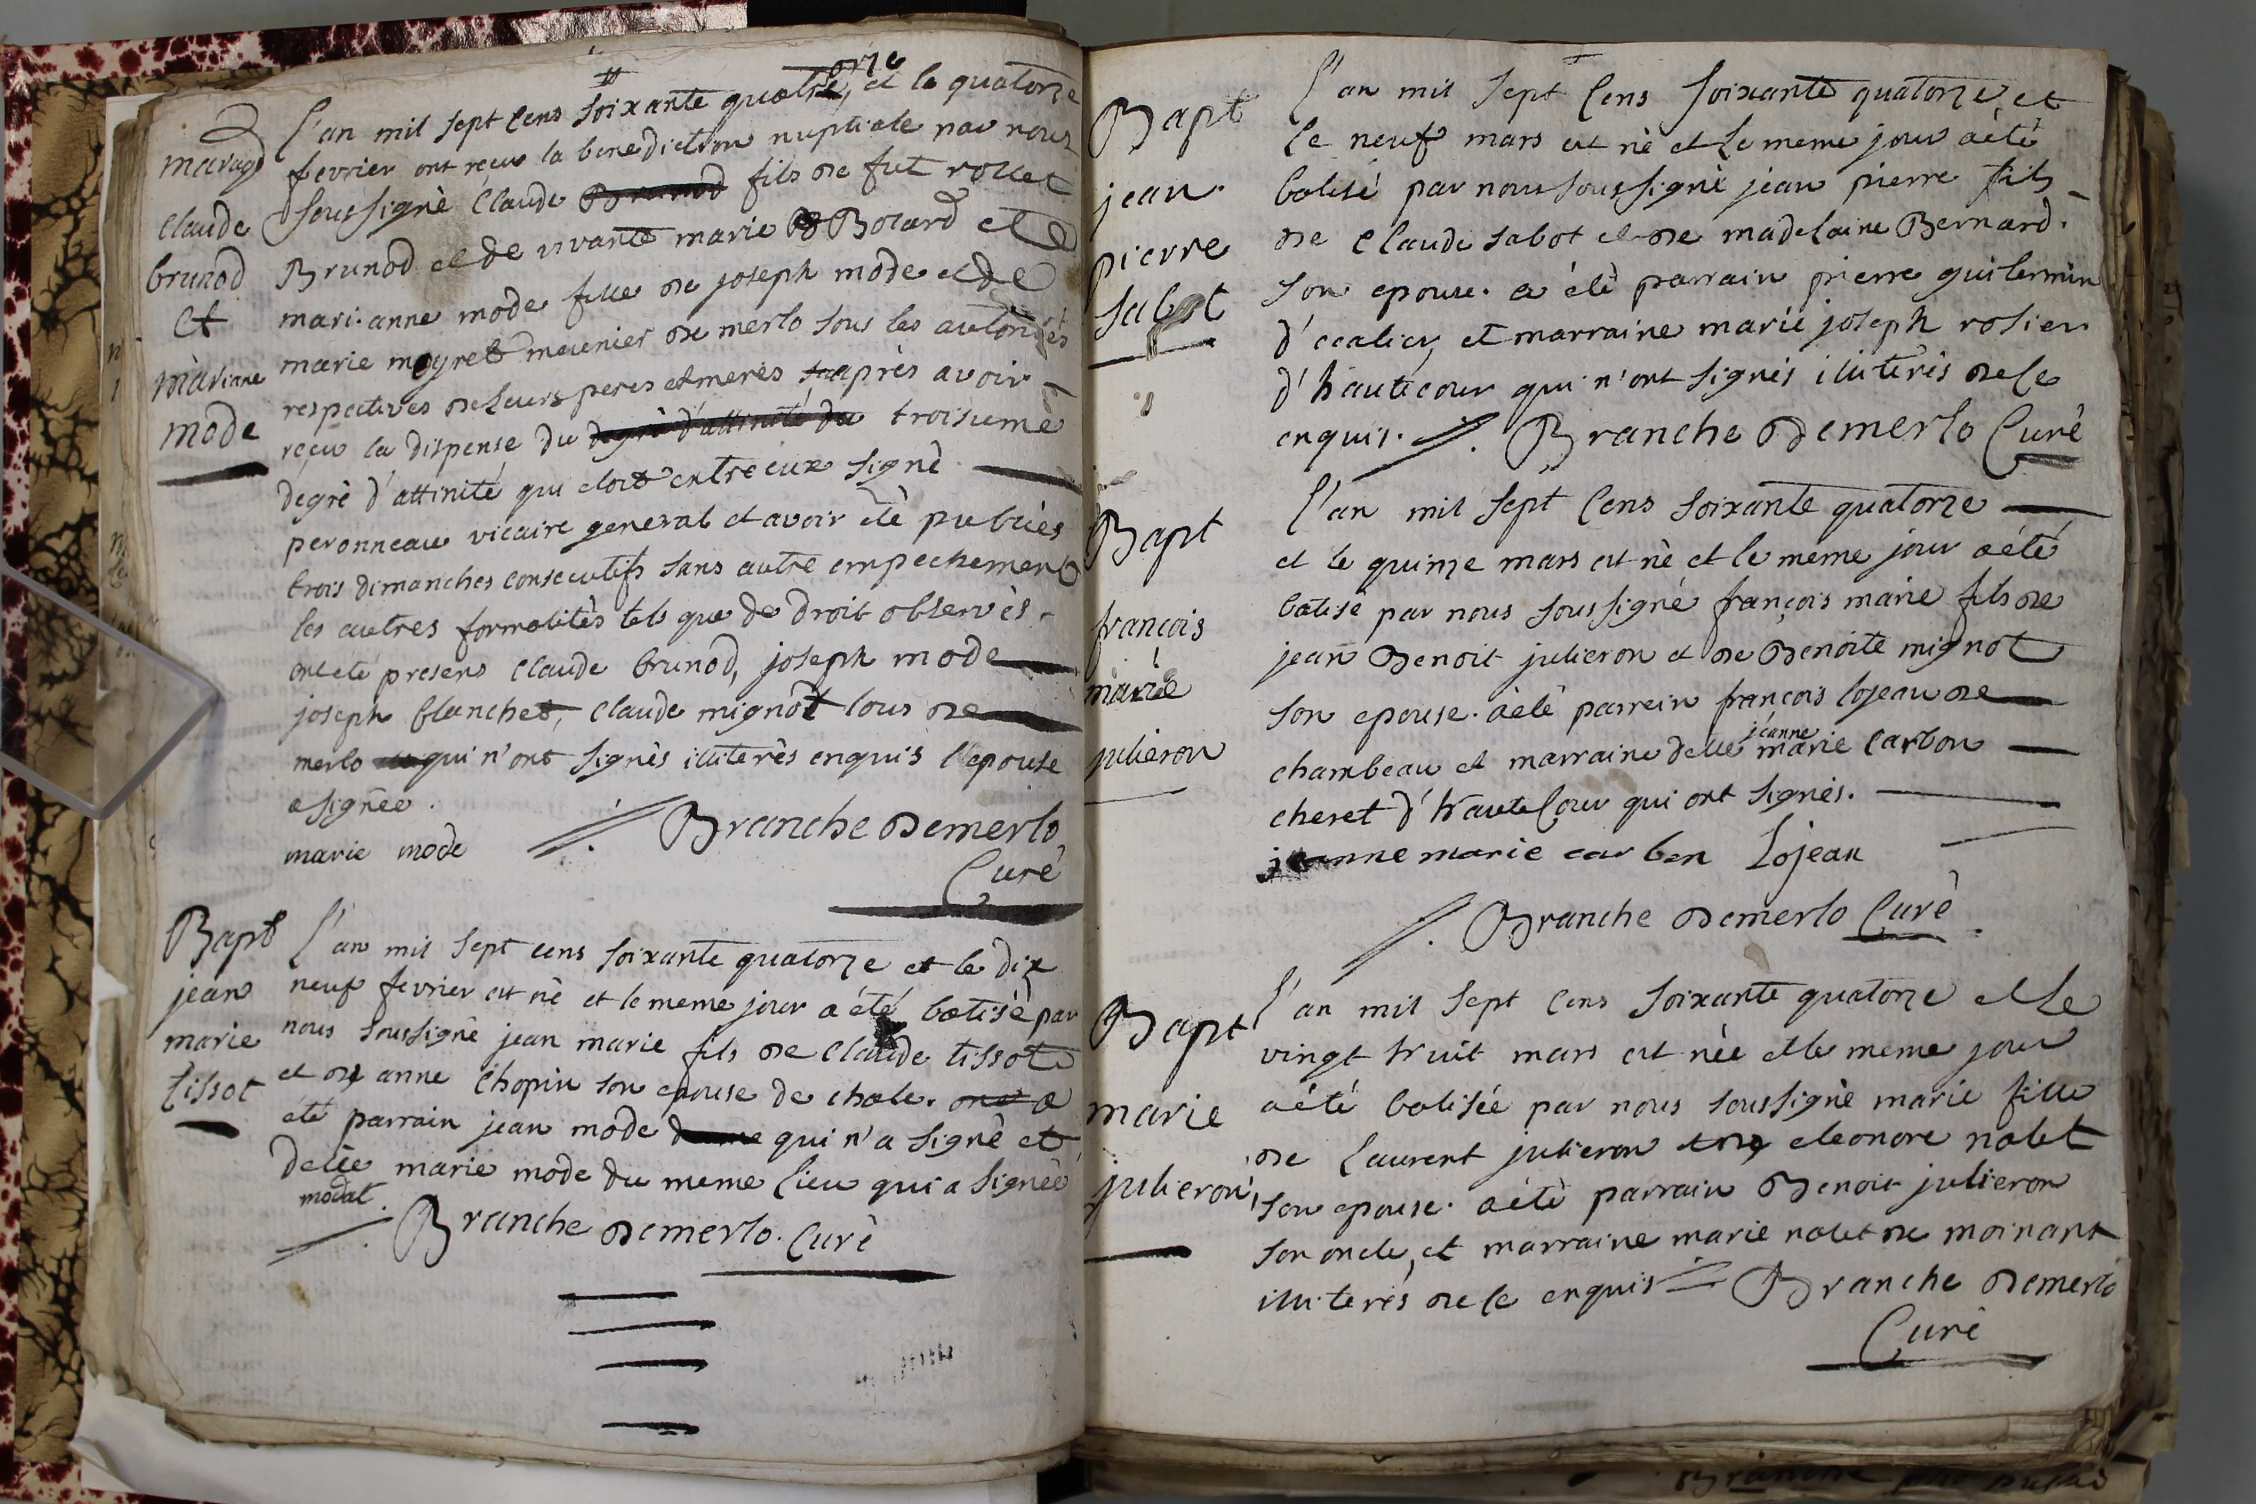 mariage
claude
brunod
et
mariane
mode
L'an mil sept cens soixante quatorze, et le quatorze
fevrier ont reçu la benediction nuptiale par nous
soussignè Claude Brunod fils de fut rollet
Brunod et de vivante marie B Borard et de
mari-anne mode fille de joseph mode et de
marie meyret meunier de merlo sous les autorités
respectives de leurs peres et meres aprés avoir
reçu la dispense du degré d'attinité du troisieme
degrè d'attinité qui etoit entre eux signè
peronneau vicaire general et avoir etè publiès
trois dimanches consecutifs sans autre empechement
les autres formalitès tels que de droit observès.
ont eté presens claude brunod, joseph mode
joseph blanchet, claude mignot tous de
merlo qui n'ont signès iliterès enquis l'epouse
a signèe.
marie mode Branche Demerlo
Curé
Bapt
jean
marie
tissot
L'an mil sept cens soixante quatorze et le dix
neuf fevrier est nè et le meme jour a été batisè par
nous soussignè jean marie fils de claude tissot
et de anne Chopin son epouse de chale. ont a
été parrain jean mode qui n'a signè et
delle marie mode du meme lieu qui a signèe
modat.
Branche Demerlo. Curè
Bapt
jean
pierre
sabot
L'an mil sept Cens soixante quatorze et
le neuf mars est nè et le meme jour a été
batisé par nous soussignè jean pierre fils
de Claude sabot et de madelaine Bernard.
son epouse. a étè parrain pierre guilermin
d'ecalier, et marraine marie joseph rosier
d'hautecour qui n'ont signés iliterés de ce
enquis. Branche Demerlo Curé
Bapt
françois
marie
julieron
L'an mil sept Cens soixante quatorze
et le quinze mars est nè et le meme jour a été
batisé par nous soussigné françois marie fils de
jean Benoit julieron et de Benoite mignot
son epouse. a été parrein françois lojean de
chambeau et marraine delle jeanne marie carbon
cheret d'hauteCour qui ont signés.
jeanne marie carben Lojean
Branche Demerlo Curè
Bapt
marie
julieron
L'an mil sept Cens soixante quatorze et le
vingt huit mars est née et le meme jour
a été batisée par nous soussignè marie fille
de Laurent julieron et de eleonore nalet
son epouse. a été parrain Benoit julieron
son oncle, et marraine marie nalet de moinant
iliterés de ce enquis Branche Demerlo
Curé